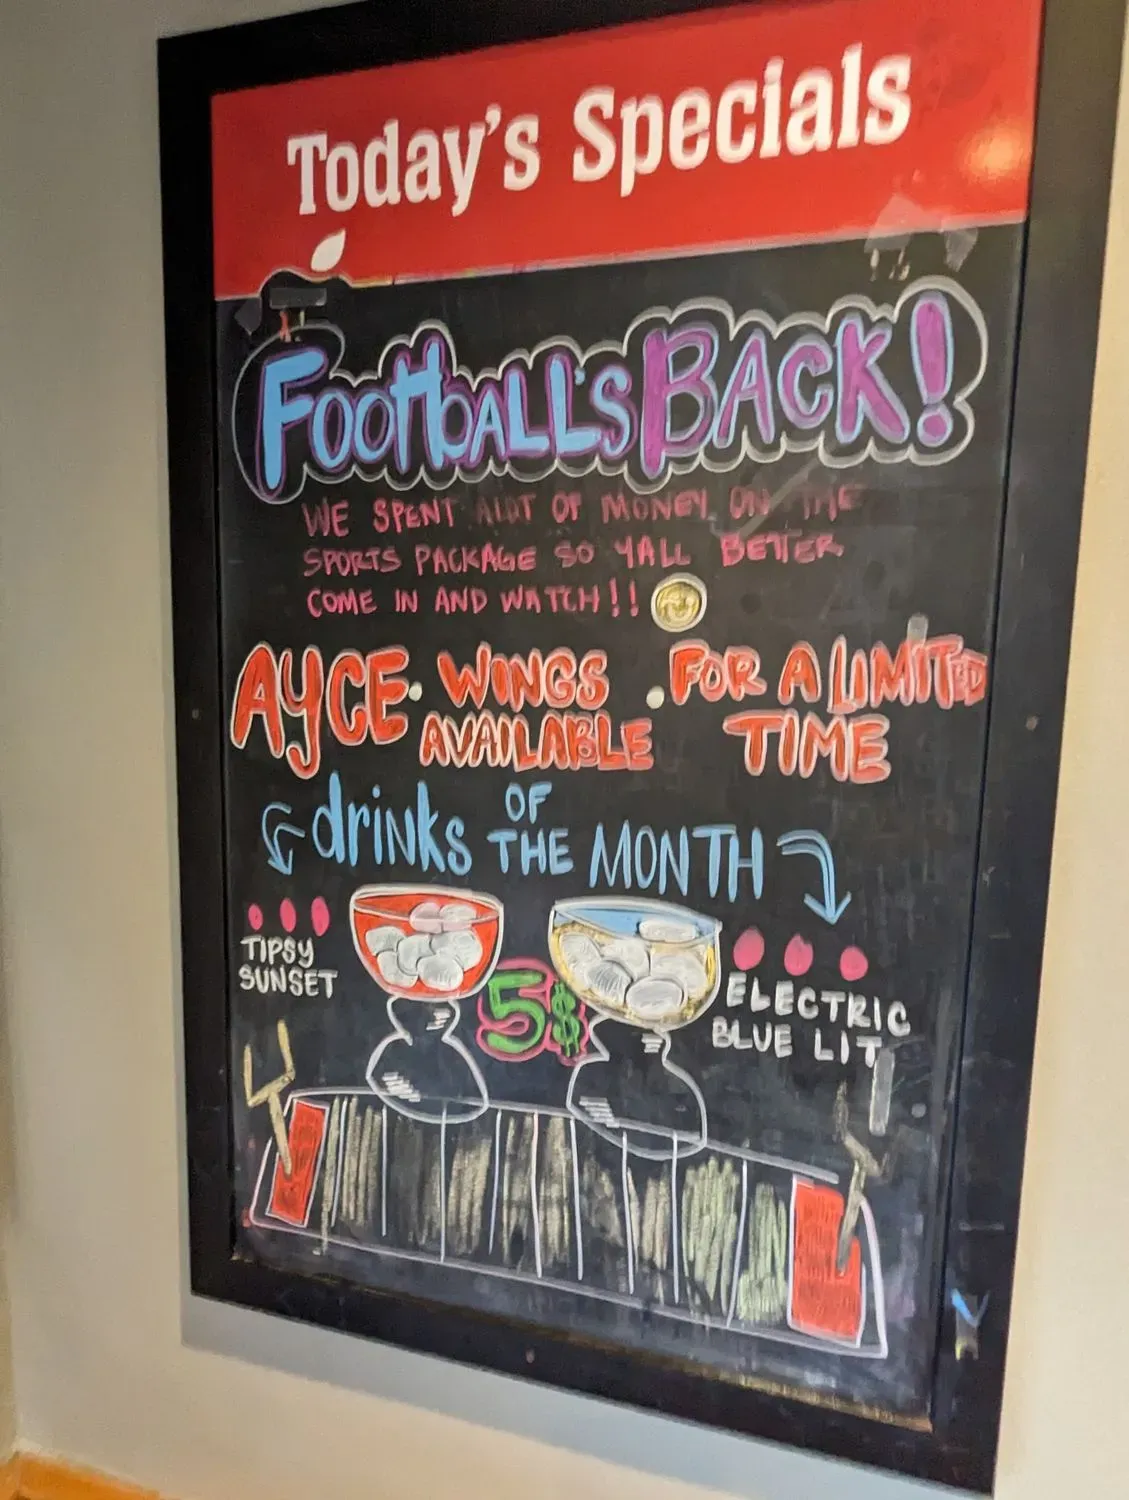 Today's Specials
FOOTBALL'S BACK!
WE SPENT ALOT OF MONEY ON THE
SPORTS PACKAGE SO YALL BETTER
COME IN AND WATCH!!
AYCE · WINGS AVAILABLE · FOR A LIMITED TIME
drinks OF THE MONTH
TIPSY
SUNSET
5$
ELECTRIC
BLUE LIT